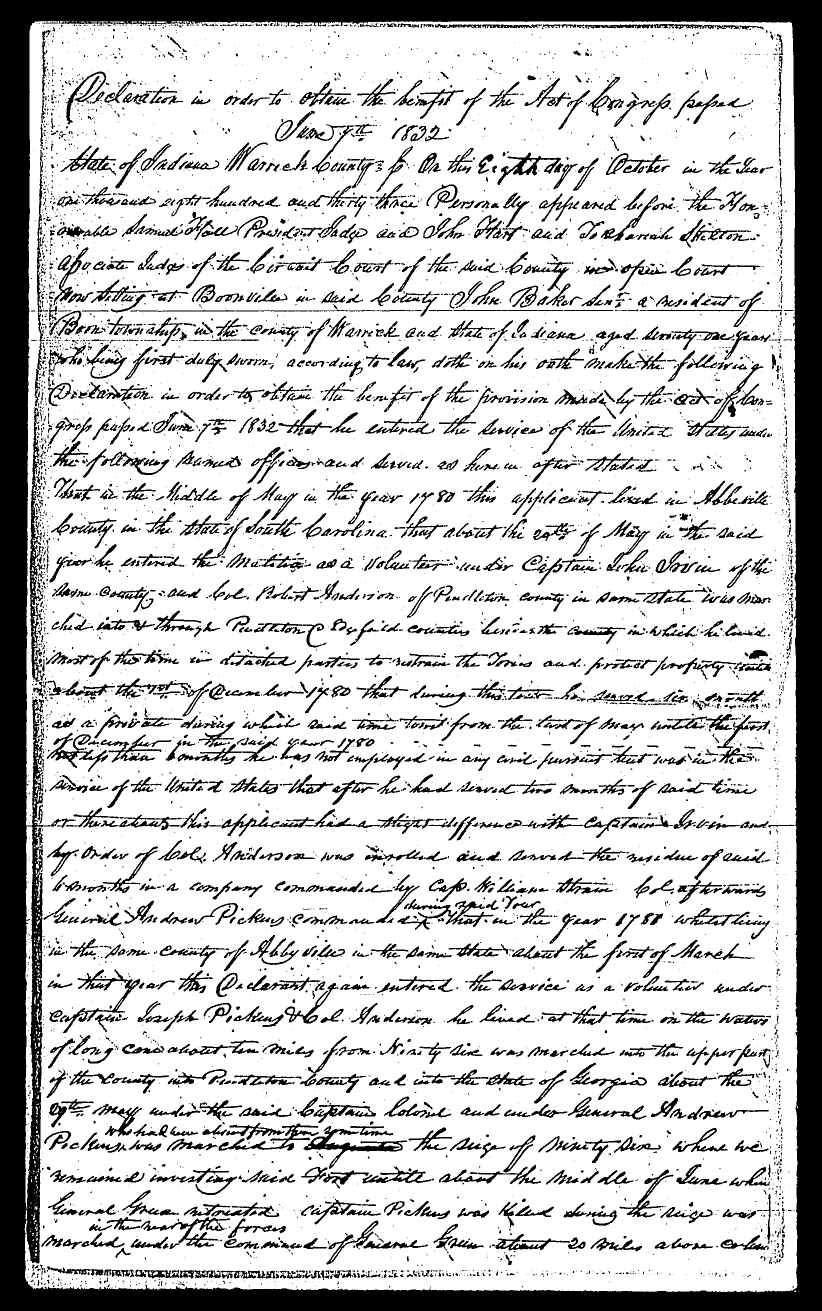 Declaration in order to obtain the benefit of the Act of Congress passed
June 7th 1832
State of Indiana Warrick County Ss On this Eighth day of October in the Year
one thousand eight hundred and thirty three Personally appeared before the Hon-
ourable Samuel Hall President Judge and John Hart and Zachariah Skelton
associate Judges of the Circuit Court of the said County in open Court
now sitting at Boonville in said County John Baker Senr. a resident of
Boon township, in the county of Warrick and State of Indiana aged seventy one years
who being first duly sworn, according to law, doth on his oath make the following
Declaration in order to obtain the benefit of the provision made by the act of Con-
gress passed June 7th 1832 that he entered the service of the United States under
the following named officers and served as herein after stated
That in the Middle of May in the year 1780 this applicant lived in Abbeville
County in the state of South Carolina that about the 29th of May in the said
year he entered the Malitia as a volunteer under Captain John Irvin of the
same county and Col. Robert Anderson of Pendleton county in same state was mar
ched into & through Pendleton & Edgfield counties besides the county in which he lived
most of the time in detached parties to restrain the Tories and protect property until
about the 1st of December 1780 that during this tour he served six months
as a private during which said time towit from the last of may untill the first
of December in the said year 1780
not less than 6 months he was not employed in any civil pursuit but was in the
service of the United States that after he had served two months of said time
or thereabouts this applicant had a slight difference with captain Irvin and
by order of Col. Anderson was enrolled and served the residue of said
6 months in a company commanded by Cap. William Strain Col. afterwards
during said Tour
General Andrew Pickens commanded ^ That in the year 1781 whilst living
in the same county of Abbyville in the same state about the first of March
in that year this Declarant again entered the service as a volunteer under
captain Joseph Pickens & Col. Anderson he lived at that time on the waters
of long cane about ten miles from Ninety six was marched into the upper part
of the county into Pendleton County and into the state of Georgia about the
29th may under the said Captain Colonel and under General Andrew
who had been absent from
Pickens was marched to the siege of ninety six where we
remained investing said Fort untill about the middle of June when
General Green retreated captain Pickens was Killed during the siege was
in the rear of the forces
marched ^ under the command of General Green about 20 miles above